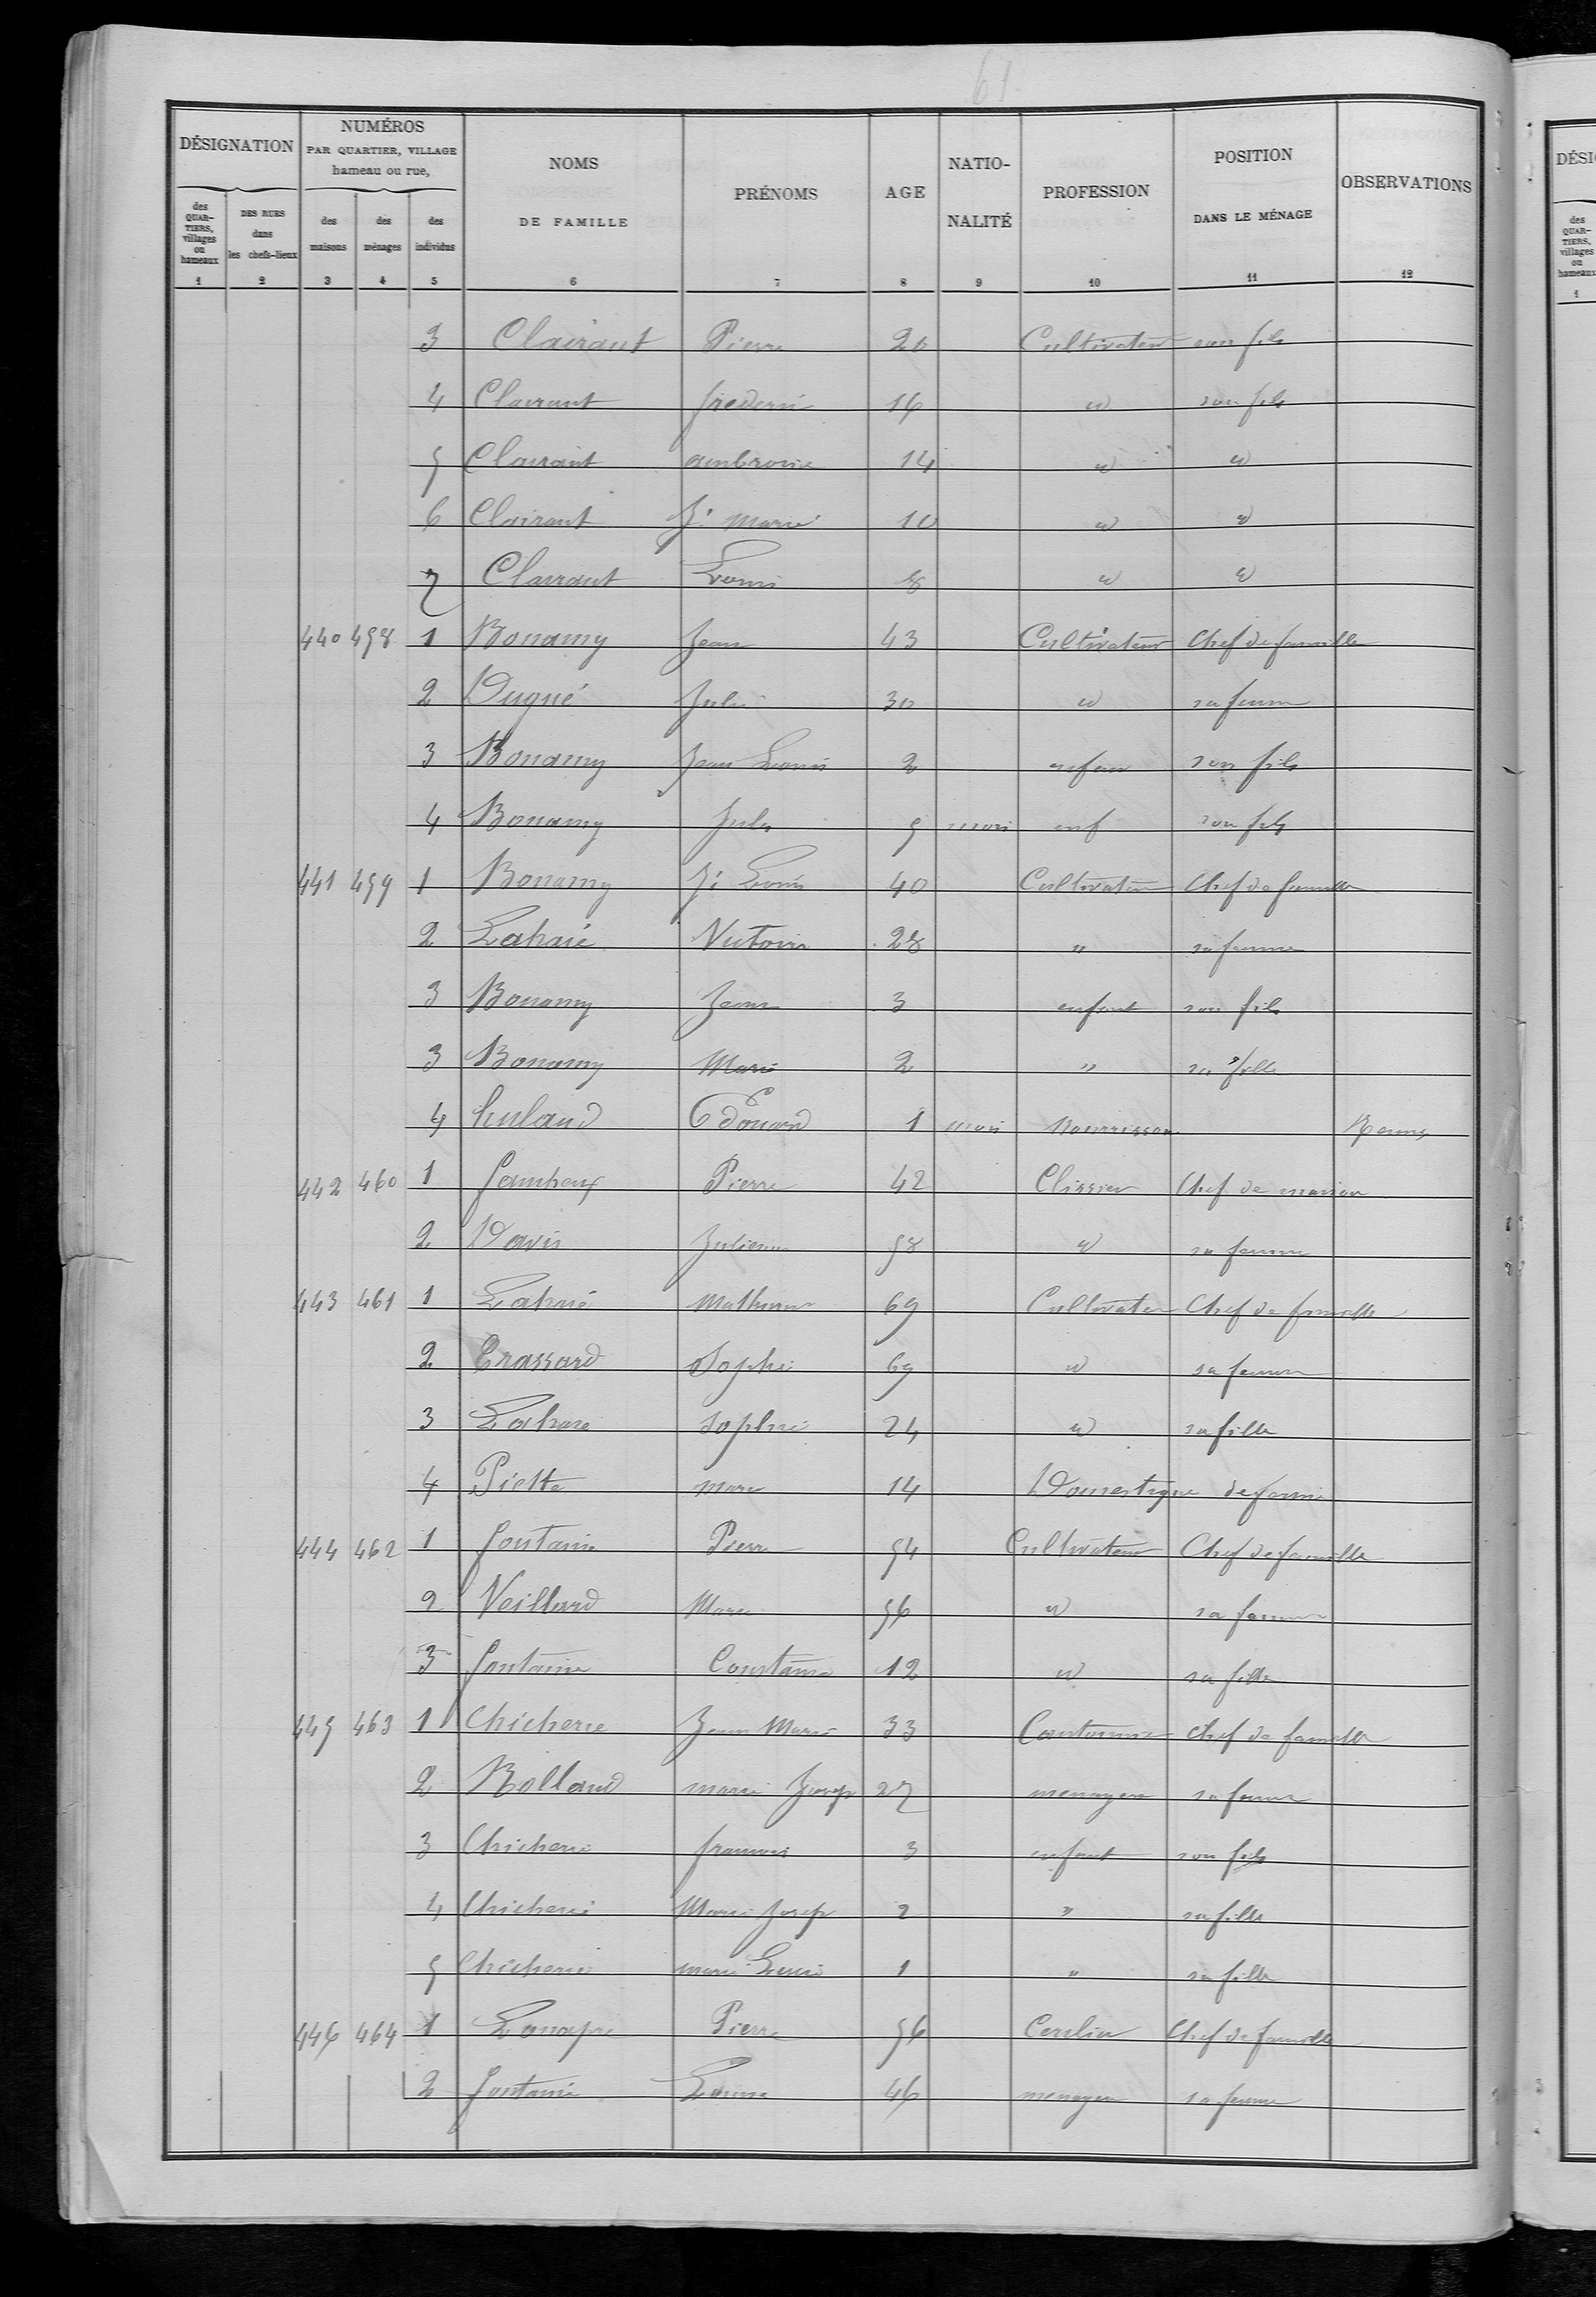 61
DÉSIGNATION NUMÉROS PAR QUARTIER, VILLAGE hameau ou rue, NOMS DE FAMILLE PRÉNOMS AGE NATIO-NALITÉ PROFESSION POSITION DANS LE MÉNAGE OBSERVATIONS
des QUAR-TIERS, villages ou hameaux DES RUES dans les chefs-lieux des maisons des ménages des individus
1 2 3 4 5 6 7 8 9 10 11 12
3 Clairant Pierre 20 Cultivateur son fils
4 Clairant frederic 16 id son fils
5 Clairant ambroise 14 id id
6 Clairant Jn Marie 10 id id
7 Clairant Louis 8 id id
440 458 1 Bonamy Jean 43 Cultivateur Chef de famille
2 Dugué Julie 30 id sa femme
3 Bonamy Jean Louis 2 enfan son fils
4 Bonamy Jules 5 mois enf son fils
441 459 1 Bonamy Jn Louis 40 Cultivateur Chef de famille
2 Lahaie Victoire 28 " sa femme
3 Bonamy Jean 3 enfant son fils
3 Bonamy Marie 2 " sa fille
4 Edouard 1 mois Nourrisson Rennes
442 460 1 Pierre 42 Clissier Chef de maison
2 Davis Julienne 58 id sa femme
443 461 1 Lahaie Mathurin 69 Cultivateur Chef de famille
2 Crassard Sophie 69 id sa femme
3 Lahaie Sophie 24 id sa fille
4 Piette marie 14 Domestique de ferme
444 462 1 fontaine Pierre 54 Cultivateur Chef de famille
2 Veillard Marie 56 id sa femme
3 fontaine Constance 12 id sa fille
445 463 1 Chicherie Jean Marie 33 Cantonnier chef de famille
2 Rolland marie Josep 27 menagere sa femme
3 Chicherie francois 3 enfant son fils
4 Chicherie Marie Josep 2 " sa fille
5 Chicherie marie Louise 1 " sa fille
446 464 1 Pierre 56 Cerclier Chef de famille
2 fontaine Louise 46 menagere sa femme
DÉSI
des QUAR-TIERS, villages ou hameaux
1